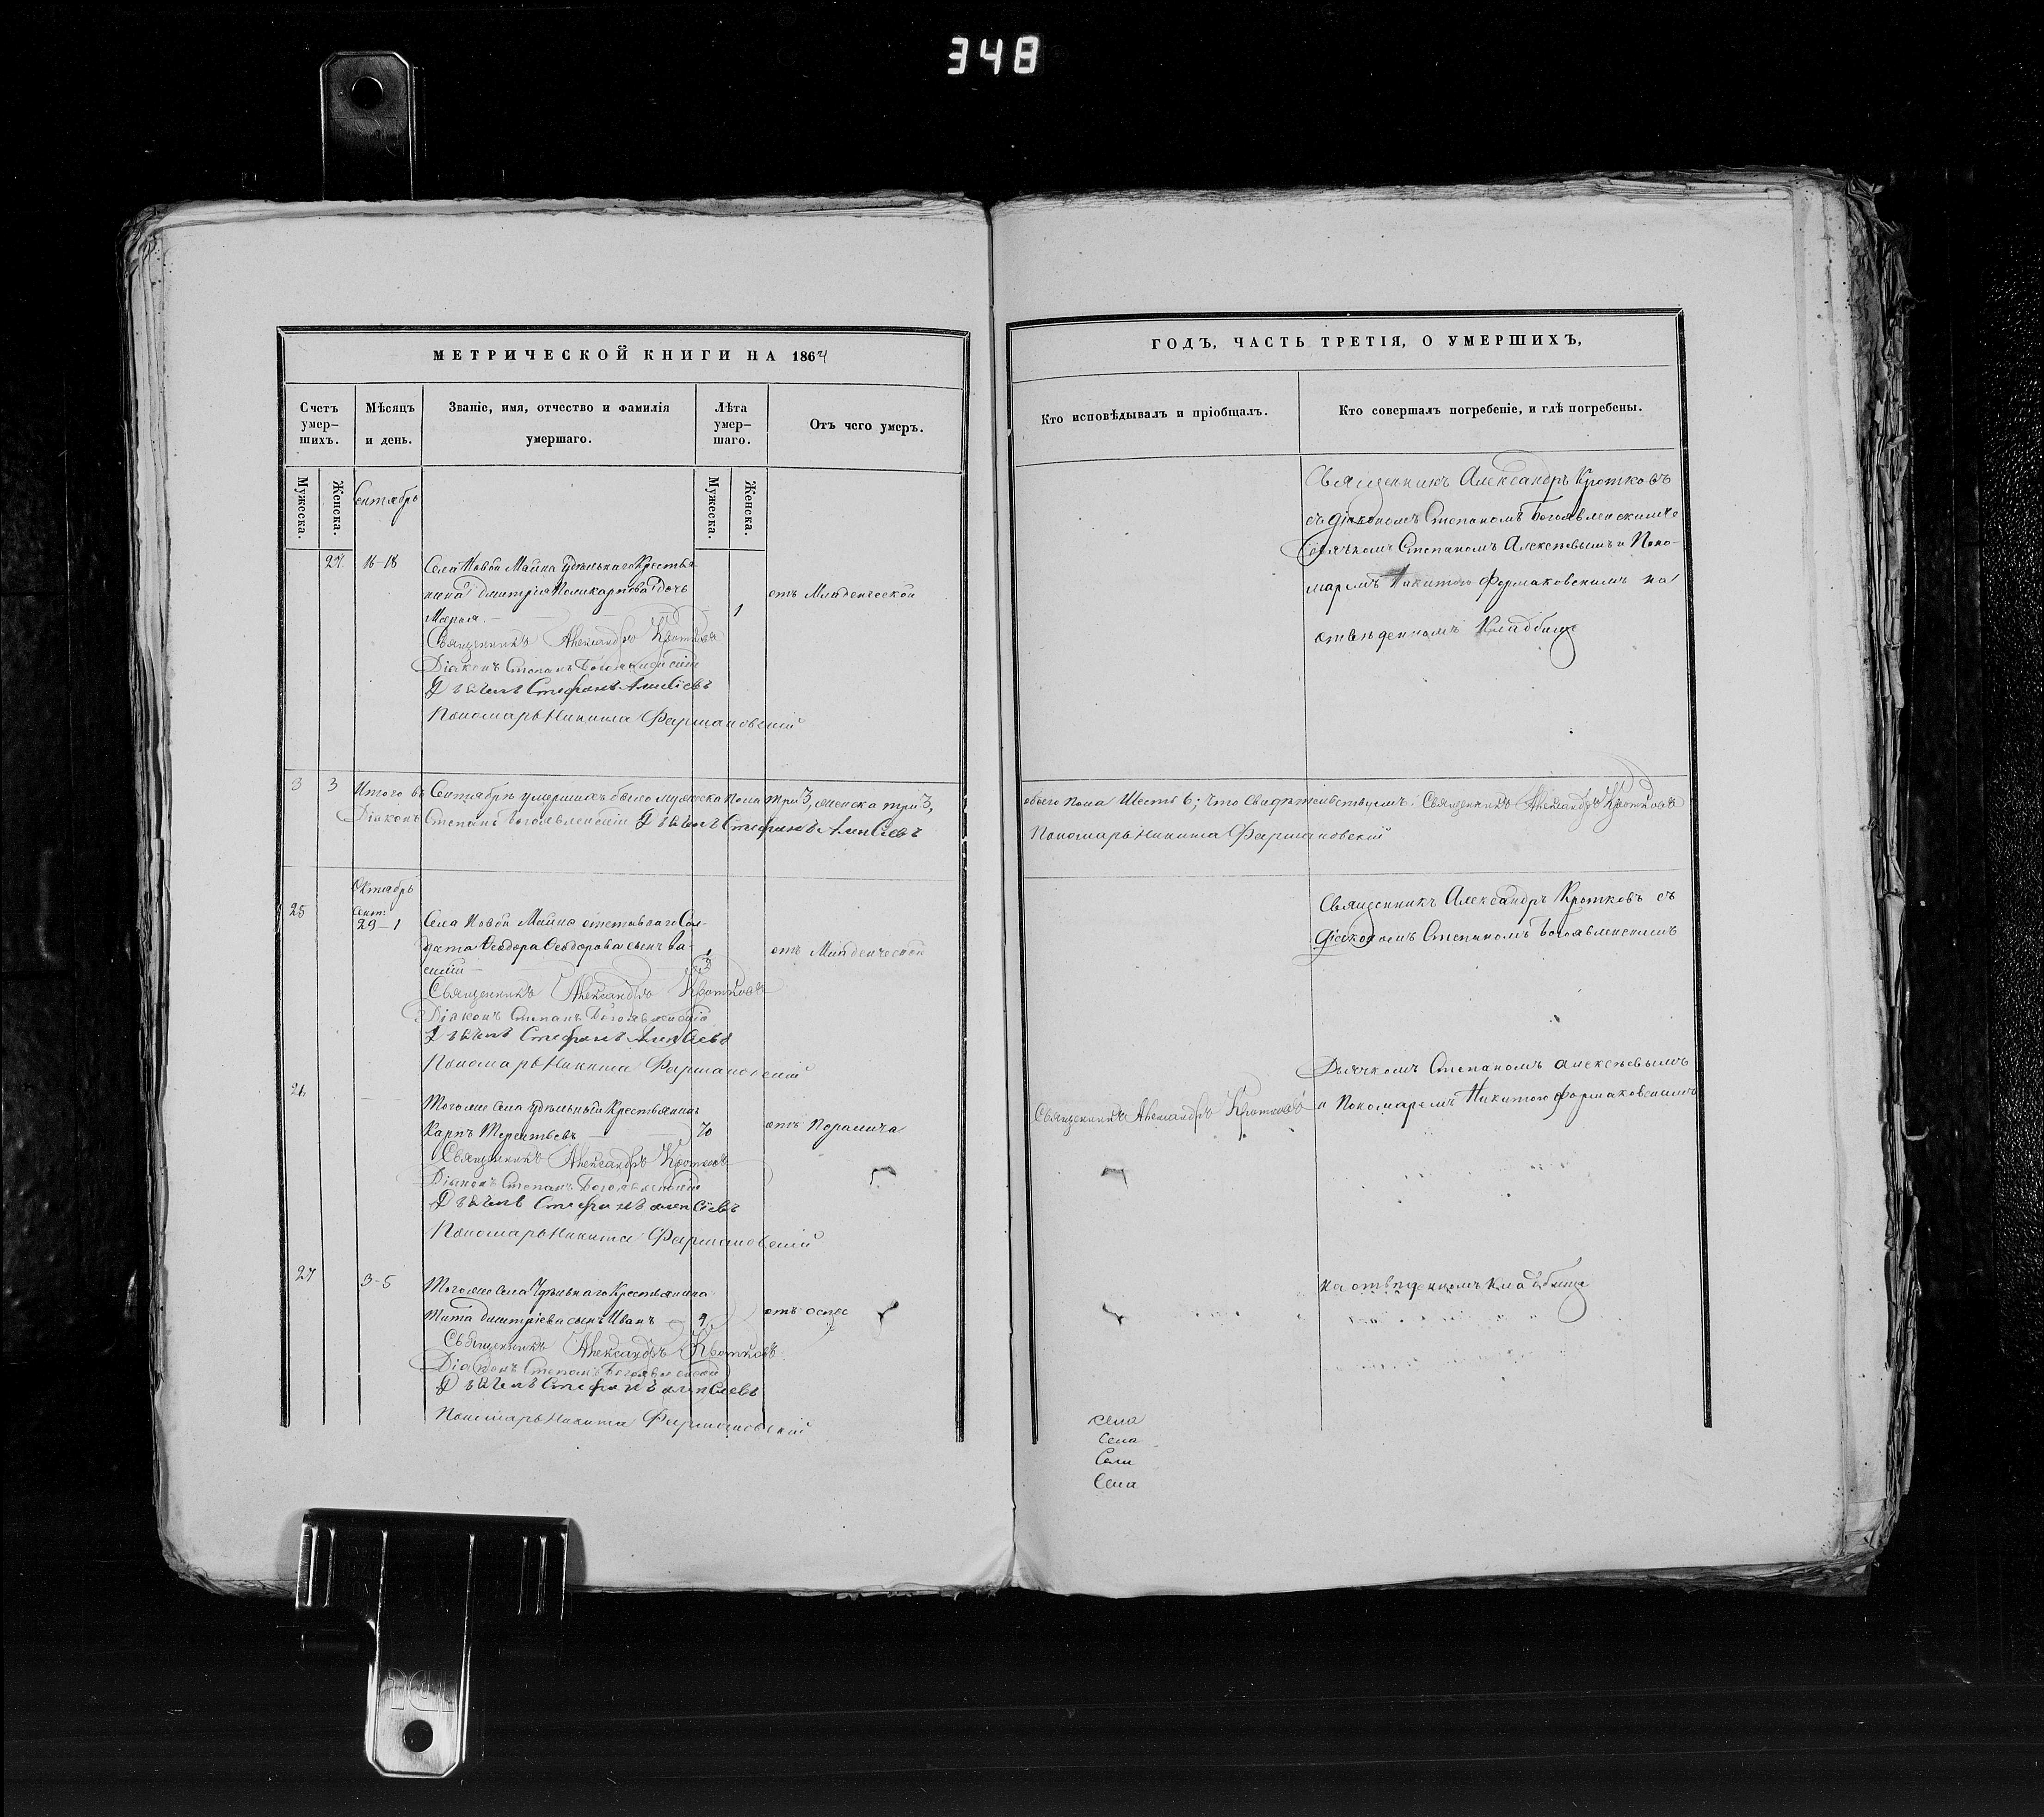 348
МЕТРИЧЕСКОЙ КНИГИ НА 1864
Счетъ умер-шихъ.
Мѣсяцъ и день.
Званіе, имя, отчество и фамилія умершаго.
Лѣта умер-шаго.
Отъ чего умеръ.
Мужеска.
Женска.
Мужеска.
Женска.
Сентябрь
24
16-18
Села Новой Майны удѣльнаго Крестья-
нина Дмитрія Поликарпова Дочь
Марья.
1
отъ Младенческой
Священникъ Александръ Кротковъ
Діаконъ Степанъ Богоявленскій
Дьячекъ Стефанъ Алексіевъ
Пономарь Никита Фармаковскій
3 3 Итого въ Сентябрѣ умершихъ было мужеска пола три 3, женска три 3,
Діаконъ Степанъ Богоявленскій Дьячекъ Стефанъ Алексіевъ
Октябрь
25
Сент:
29-1
Села Новой Майны отставнаго Сол-
дата Ѳеодора Ѳеодорова сынъ Ва-
силій
1/2
отъ Младенческой
Священникъ Александръ Кротковъ
Діаконъ Степанъ Богоявленскій
Дьячекъ Стефанъ Алексіевъ
Пономарь Никита Фармаковскій
26
Тогоже села удѣльный Крестьянинъ
Карпъ Терентьевъ
70
отъ Паралича
Священникъ Александръ Кротковъ
Діаконъ Степанъ Богоявленскій
Дьячекъ Стефанъ Алексіевъ
Пономарь Никита Фармаковскій
27
3-5
Тогоже села Удѣльнаго Крестьянина
Тита Дмитріева сынъ Иванъ
9
отъ оспы
Священникъ Александръ Кротковъ
Діаконъ Степанъ Богоявленскій
Дьячекъ Стефанъ Алексіевъ
Пономарь Никита Фармаковскій
ГОДЪ, ЧАСТЬ ТРЕТІЯ, О УМЕРШИХЪ,
Кто исповѣдывалъ и пріобщалъ.
Кто совершалъ погребеніе, и гдѣ погребены.
Священникъ Александръ Кротковъ
съ діакономъ Степаномъ Богоявленскимъ
Дьячкомъ Степаномъ Алексѣевымъ и Поно-
маремъ Никитою Фармаковскимъ на
отведенномъ Кладбище
обоего пола Шесть 6; что свидѣтельствуемъ: Священникъ Александръ Кротковъ
Пономарь Никита Фармаковскій
Священникъ Александръ Кротковъ съ
діакономъ Степаномъ Богоявленскимъ
Дьячкомъ Степаномъ Алексѣевымъ
Священникъ Александръ Кротковъ
и Пономаремъ Никитою Фармаковскимъ
на отведенномъ кладбище
села
Села
Села
Села